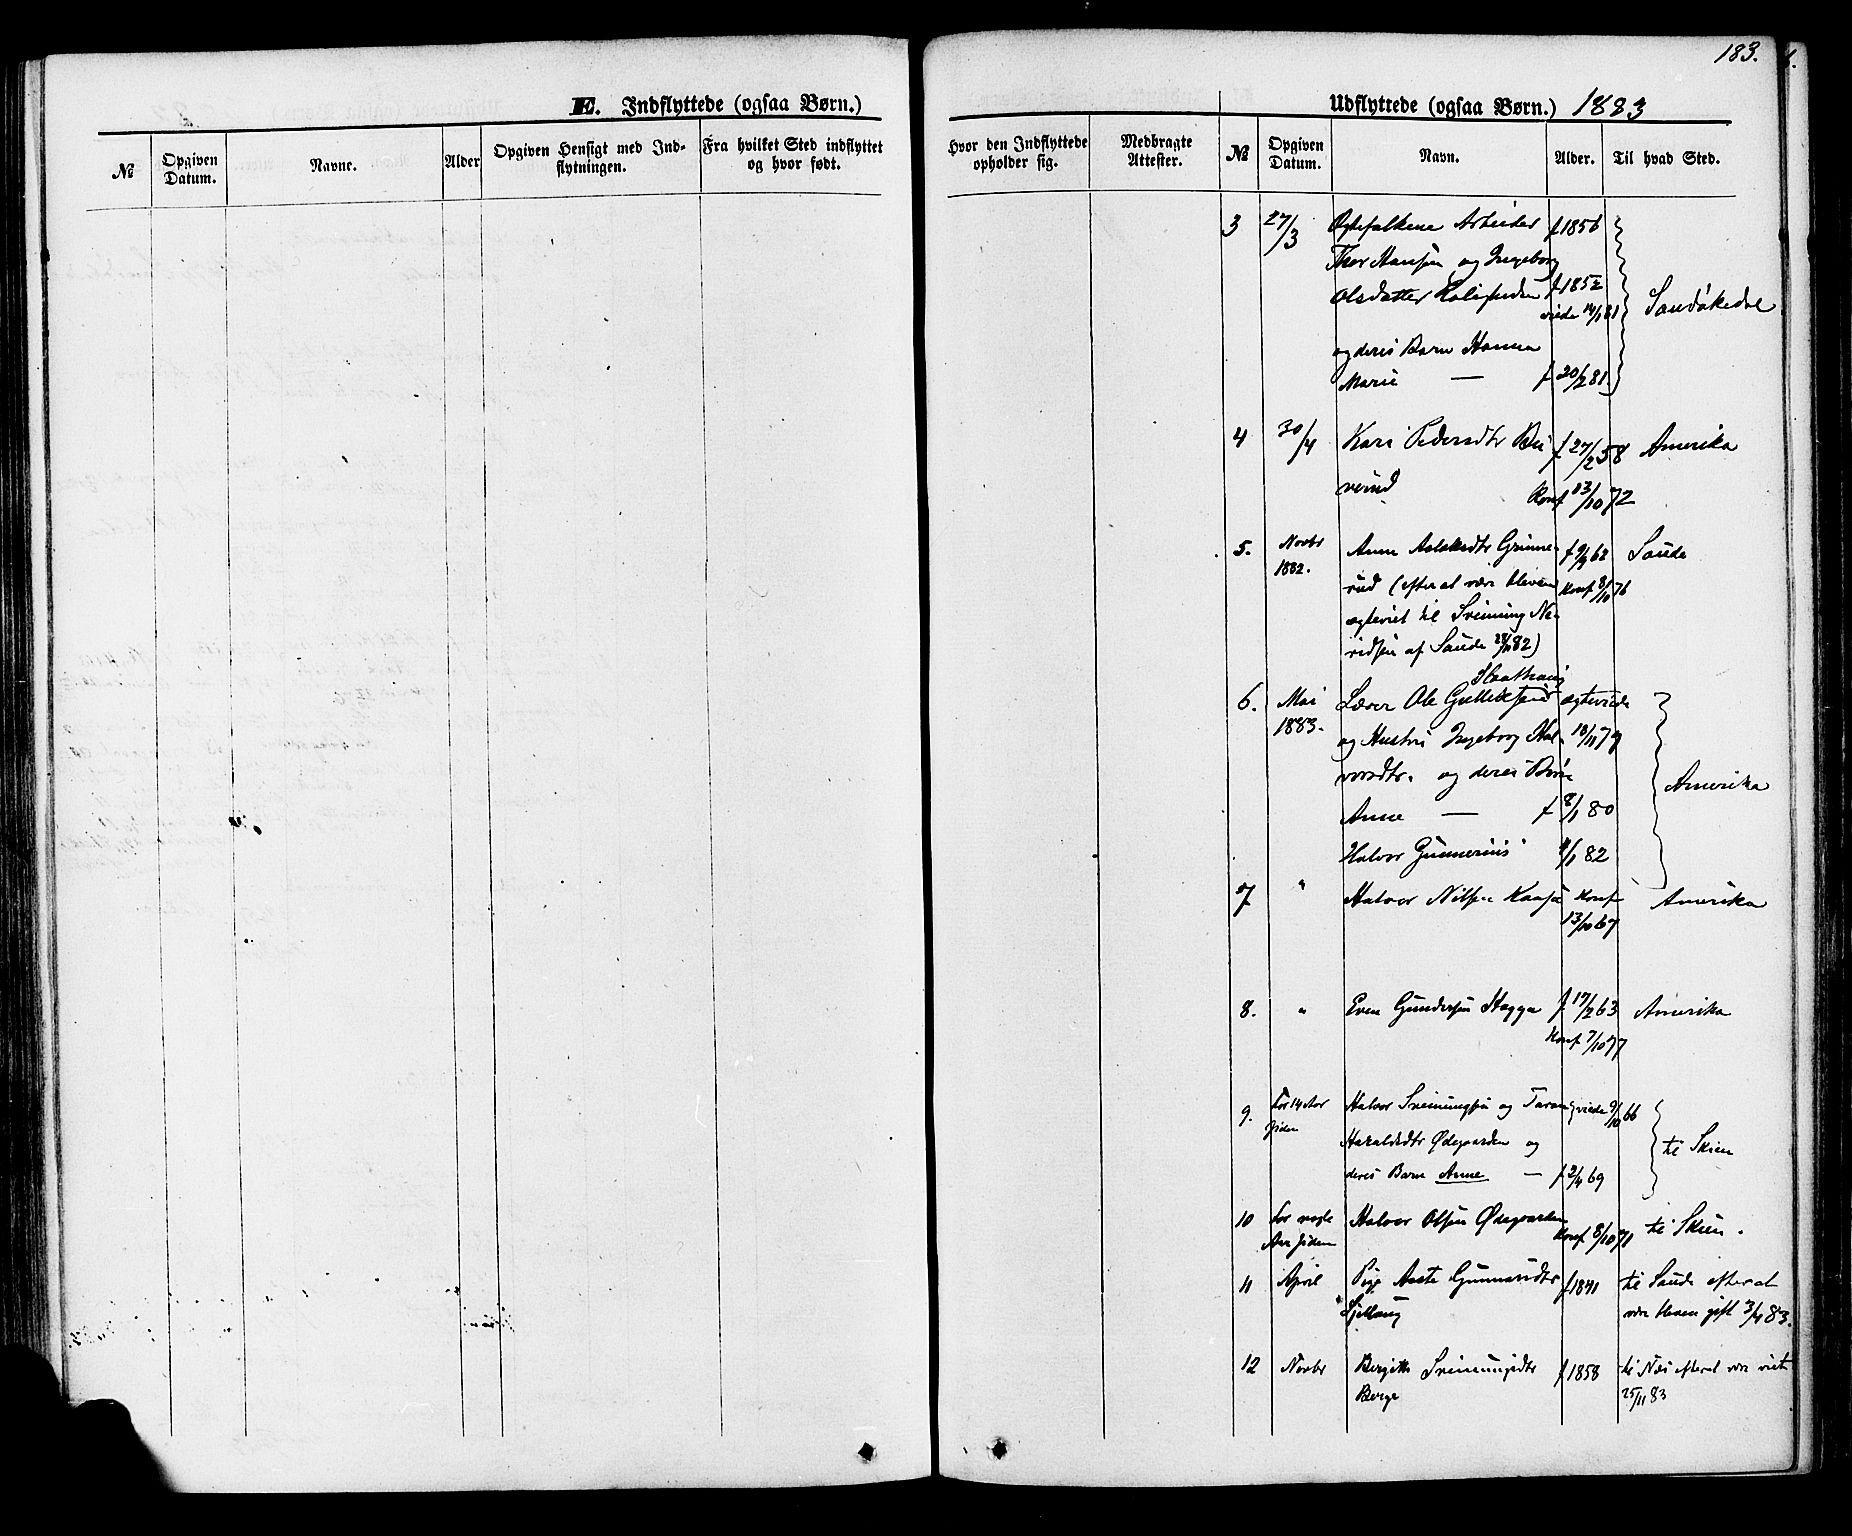 183.
E. Indflyttede (ogsaa Børn.)
№
Opgiven Datum.
Navne.
Alder
Opgiven Hensigt med Ind-
flytningen.
Fra hvilket Sted indflyttet
og hvor født.
Udflyttede (ogsaa Børn.) 1883
Hvor den Indflyttede
opholder sig.
Medbragte
Attester.
№
Opgiven
Datum.
Navn.
Alder.
Til hvad Sted.
3 27/3 Ægtefolkene Arbeider f 1856
Thor Hansen og Ingeborg
Olsdatter f 1852
viede 14/1 81 Sandökedal
og deres Barn Hanna
Marie — f 20/2 81.
4 30/4 Kari Pedersdtr Bu f 27/2 58 Amerika
verud Konf 13/10 72
5. Novbr Anne Aslaksdtr Grinne- f 9/9 62 Saude
1882. rud (efter at være bleven Konf 8/10 76
ægteviet til Sveinung Ne-
ridsen af Saude 28/11 82)
6. Mai Lærer Ole Gulliksen ægteviede
1883. og Hustru Ingeborg Hal- 18/11 79
vorsdtr. og deres Børn Amerika
Anne — f 8/1 80
Halvor Gunnerius 9/1 82
7 " Halvor Nilsen Kaasa Konf Amerika
13/10 67
8. " Even Gundersen Hagga f 17/2 63 Amerika
Konf 7/10 77
9. For 14 Aar Halvor Sveinungsen og Taran viede 9/10 66
siden Haraldsdtr Ødegaarden og til Skien
deres Barn Anne — f 2/4 69
10 For nogle Halvor Olsen Ødegaarden
Aar siden Konf 8/10 71 til Skien.
11 April Pige Aaste Gunnarsdtr f 1841 til Saude efter at
være bleven gift 3/4 83.
12 Novbr Bergitte Sveinungsdtr f 1858 til Næs efter at være viet
Berge 25/11 83